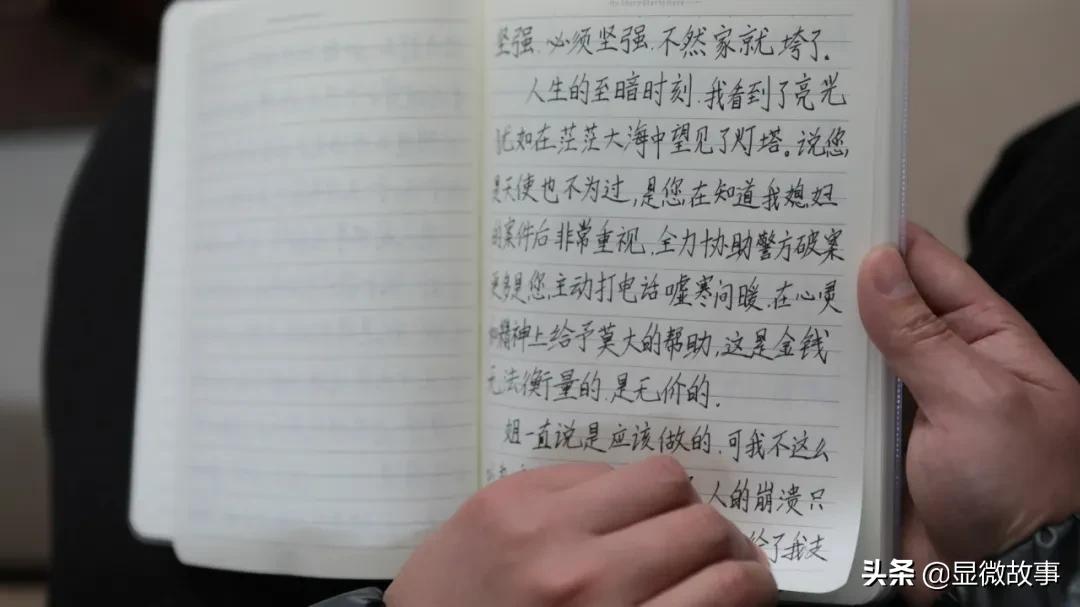 坚强、必须坚强、不然家就垮了。
人生的至暗时刻、我看到了亮光
犹如在茫茫大海中望见了灯塔。说您
是天使也不为过,是您在知道我媳妇
的案件后非常重视、全力协助警方破案
更多是您主动打电话嘘寒问暖、在心灵
和精神上给予莫大的帮助,这是金钱
无法衡量的、是无价的。
姐一直说是应该做的、可我不这么
人的崩溃只
给了我支
头条 @显微故事